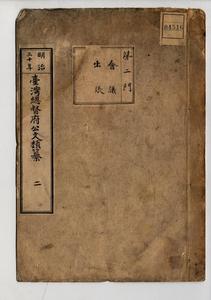 04516
第二門
會議
出張
明治
三十年
臺灣總督府公文類纂
二